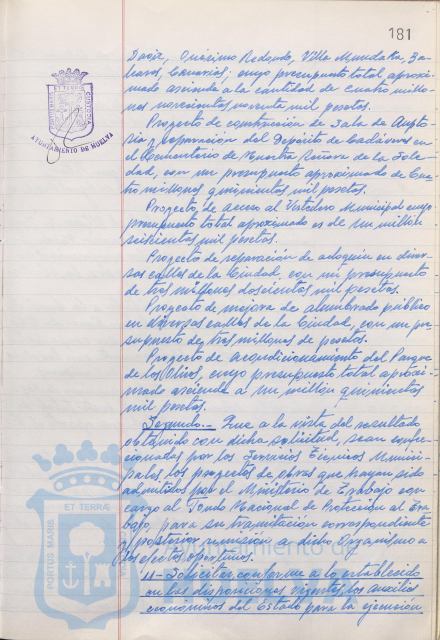 181
Dacia, Onésimo Redondo, Villa Mundaka, Ba-
leares, Canarias; cuyo presupuesto total aproxi-
mado asciende a la cantidad de cuatro millo-
nes novecientas noventa mil pesetas.
Proyecto de construcción de Sala de Autop-
sia y reparación del Depósito de Cadáveres en
el Cementerio de Nuestra Señora de la Sole-
dad, con un presupuesto aproximado de Cua-
tro millones quinientas mil pesetas.
Proyecto de acceso al Vertedero Municipal cuyo
presupuesto total aproximado es de un millón
seiscientas mil pesetas.
Proyecto de reparación de adoquín en diver-
sas calles de la Ciudad, con un presupuesto
de tres millones doscientas mil pesetas.
Proyecto de mejora de alumbrado público
en diversas calles de la Ciudad, con un pre-
supuesto de tres millones de pesetas.
Proyecto de acondicionamiento del Parque
de los Olivos, cuyo presupuesto total aproxi-
mado asciende a un millón quinientas
mil pesetas.
Segundo.- Que a la vista del resultado
obtenido con dicha solicitud, sean confec-
cionados por los Servicios Técnicos Munici-
pales los proyectos de obras que hayan sido
admitidos por el Ministerio de Trabajo con
cargo al Fondo Nacional de Protección al Tra-
bajo, para su tramitación correspondiente
y posterior remisión a dicho Organismo a
los efectos oportunos.
11- Solicitar, conforme a lo establecido
en las disposiciones vigentes, los auxilios
económicos del Estado para la ejecución
AYUNTAMIENTO DE HUELVA
PORTUS MARIS ET TERRÆ
Ayuntamiento de